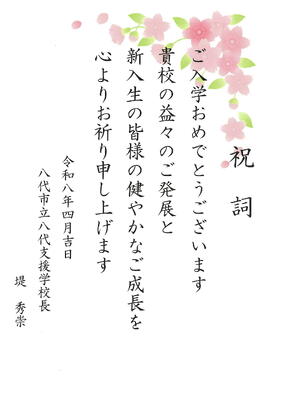 祝詞
ご入学おめでとうございます
貴校の益々のご発展と
新入生の皆様の健やかなご成長を
心よりお祈り申し上げます
令和八年四月吉日
八代市立八代支援学校長
堤 秀崇